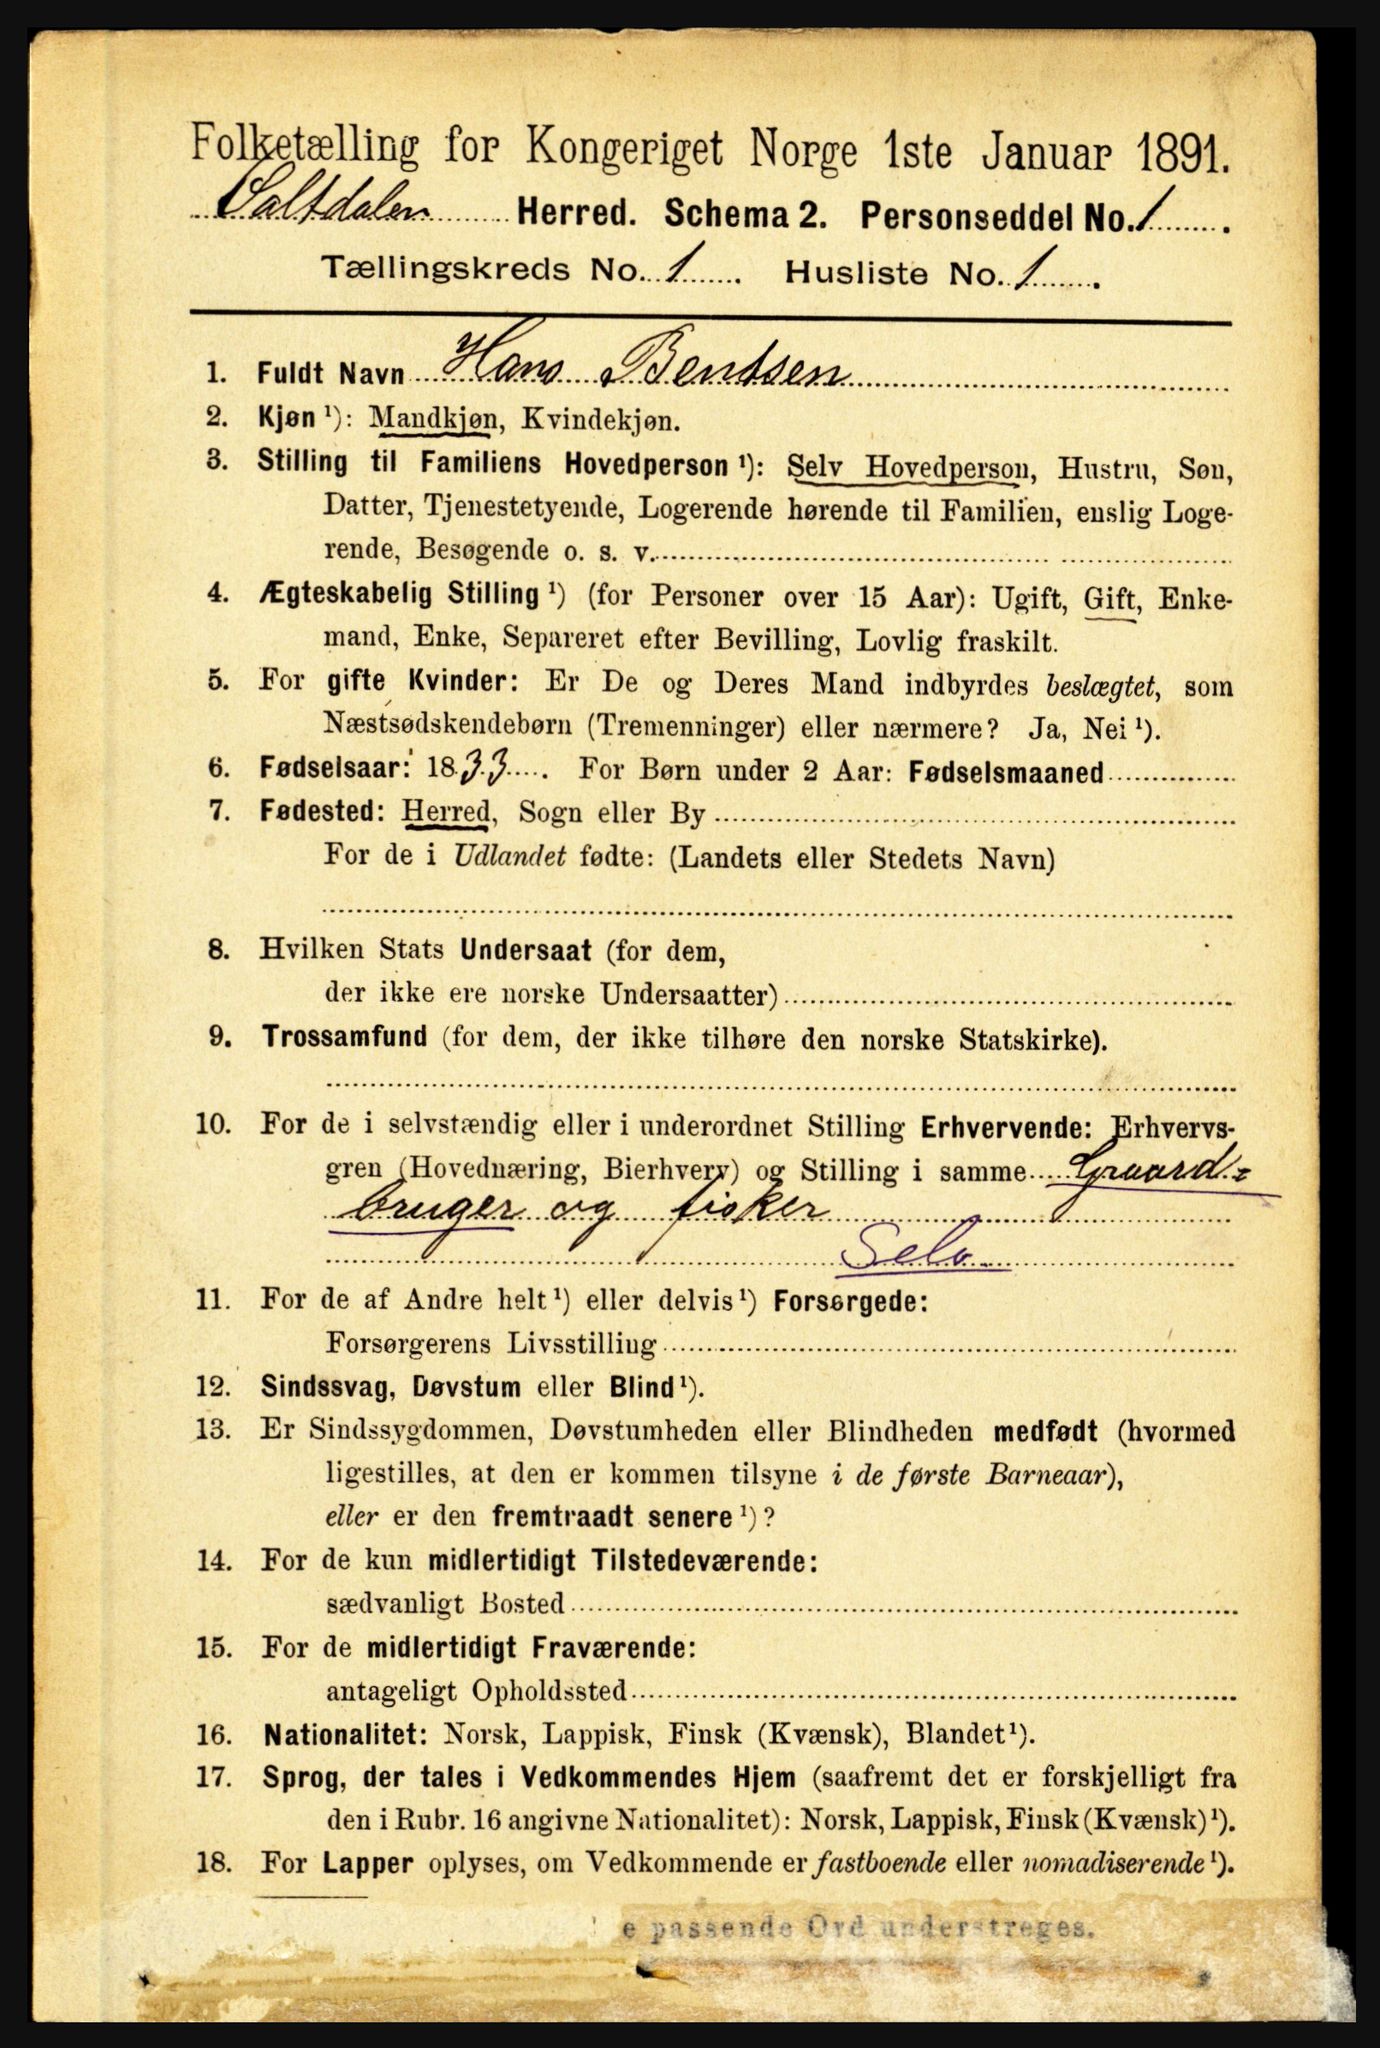 Folketælling for Kongeriget Norge 1ste Januar 1891.
Saltdalen Herred. Schema 2. Personseddel No. 1.
Tællingskreds No. 1. Husliste No. 1.
1. Fuldt Navn Hans Bentsen
2. Kjøn ¹): Mandkjøn, Kvindekjøn.
3. Stilling til Familiens Hovedperson ¹): Selv Hovedperson, Hustru, Søn,
Datter, Tjenestetyende, Logerende hørende til Familien, enslig Loge-
rende, Besøgende o. s. v.
4. Ægteskabelig Stilling ¹) (for Personer over 15 Aar): Ugift, Gift, Enke-
mand, Enke, Separeret efter Bevilling, Lovlig fraskilt.
5. For gifte Kvinder: Er De og Deres Mand indbyrdes beslægtet, som
Næstsødskendebørn (Tremenninger) eller nærmere? Ja, Nei ¹).
6. Fødselsaar: 1833. For Børn under 2 Aar: Fødselsmaaned
7. Fødested: Herred, Sogn eller By
For de i Udlandet fødte: (Landets eller Stedets Navn)
8. Hvilken Stats Undersaat (for dem,
der ikke ere norske Undersaatter)
9. Trossamfund (for dem, der ikke tilhøre den norske Statskirke).
10. For de i selvstændig eller i underordnet Stilling Erhvervende: Erhvervs-
gren (Hovednæring, Bierhverv) og Stilling i samme Graard=
bruger og fisker
Selv
11. For de af Andre helt ¹) eller delvis ¹) Forsørgede:
Forsørgerens Livsstilling
12. Sindssvag, Døvstum eller Blind ¹).
13. Er Sindssygdommen, Døvstumheden eller Blindheden medfødt (hvormed
ligestilles, at den er kommen tilsyne i de første Barneaar),
eller er den fremtraadt senere ¹)?
14. For de kun midlertidigt Tilstedeværende:
sædvanligt Bosted
15. For de midlertidigt Fraværende:
antageligt Opholdssted
16. Nationalitet: Norsk, Lappisk, Finsk (Kvænsk), Blandet ¹).
17. Sprog, der tales i Vedkommendes Hjem (saafremt det er forskjelligt fra
den i Rubr. 16 angivne Nationalitet): Norsk, Lappisk, Finsk (Kvænsk) ¹).
18. For Lapper oplyses, om Vedkommende er fastboende eller nomadiserende ¹).
e passende Ord understreges.